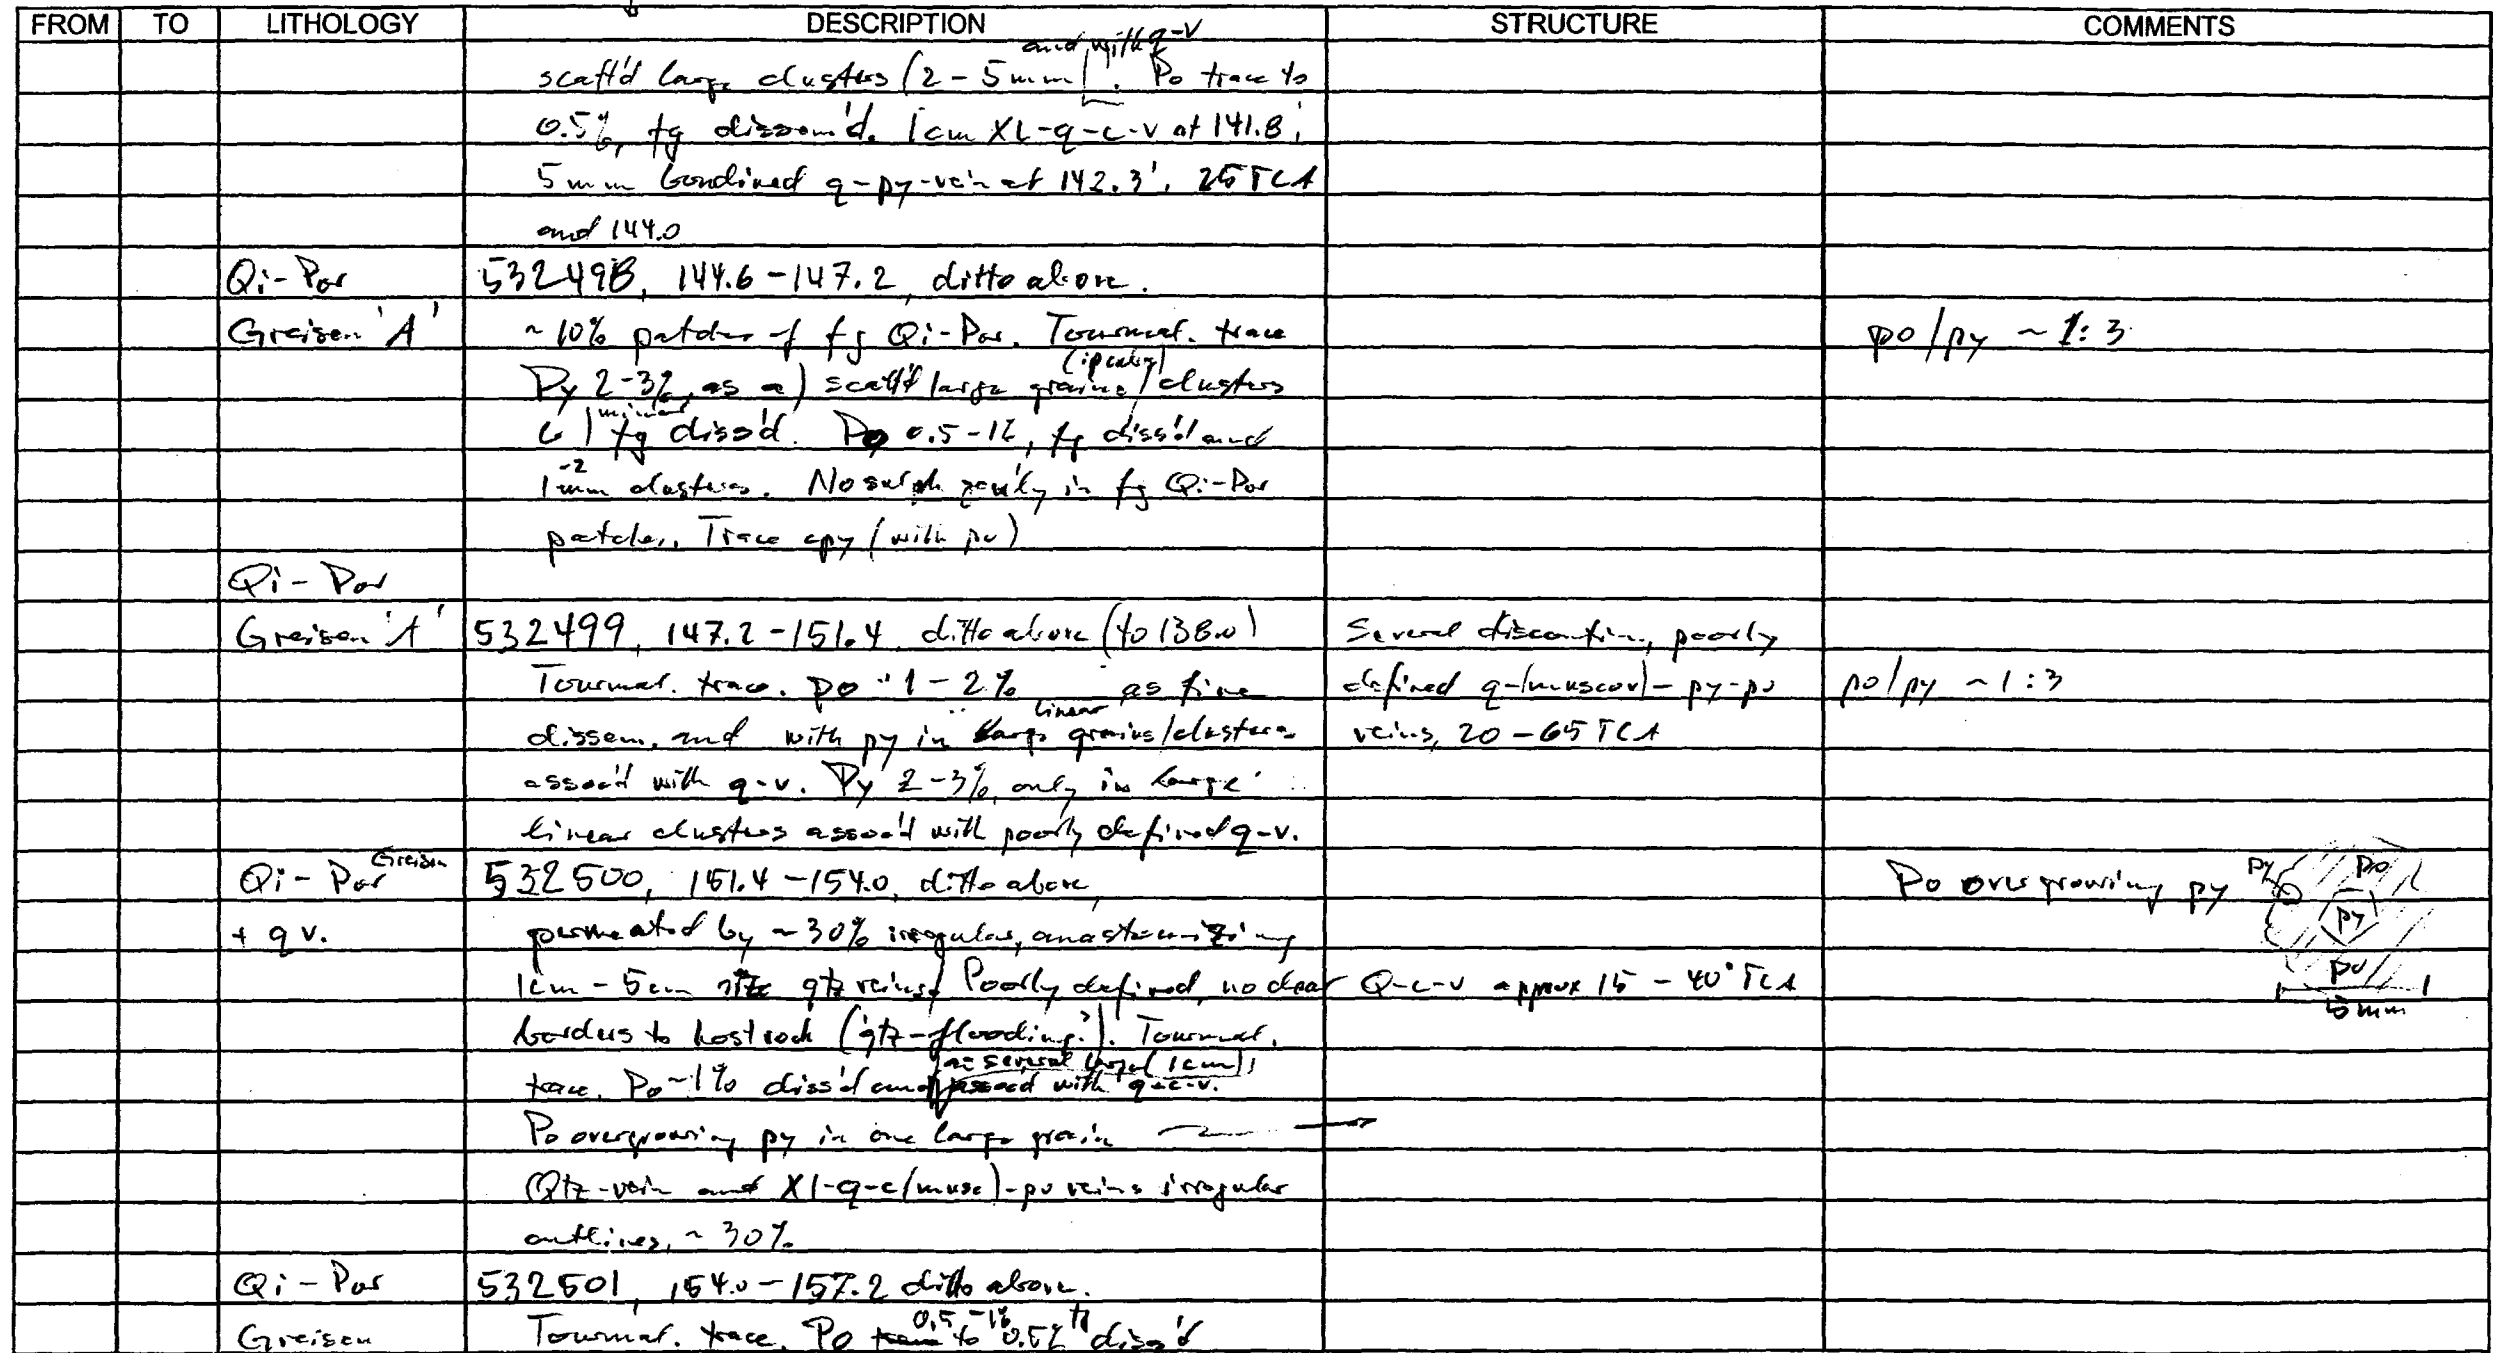 FROM TO LITHOLOGY DESCRIPTION STRUCTURE COMMENTS
and with q-v
scatt'd large clusters (2-5mm). Po trace to
0.5%, fg dissem'd. 1cm XL-q-c-v at 141.8',
5mm q-py-vein at 142.3', 25 TCA
and 144.0
Qi-Por 532498, 144.6-147.2, ditto above.
Greisen 'A' ~10% patches of fg Qi-Por. Tourmal. trace po/py ~ 1:3
Py 2-3%, as a) scatt'd large grains / clusters
minor
b) fg diss'd. Po 0.5-1%, fg diss'd and
1-2mm clusters. No sulph in fg Qi-Por
patches. Trace cpy (with po)
Qi-Por
Greisen 'A' 532499, 147.2-151.4 ditto above (to 138.0) Several discontin, poorly
Tourmal. trace. po 1-2% as fine defined q-(muscov)-py-po po/py ~1:3
linear
dissem, and with py in grains/clusters veins, 20-65 TCA
assoc'd with q-v. Py 2-3%, only in large
linear clusters assoc'd with poorly defined q-v.
Qi-Por Greisen 532500, 151.4-154.0, ditto above, Po overgrowing py py po
+ qv. permeated by ~30% irregular, anastomizing py
1cm-5cm qtz veins. Poorly defined, no clear Q-c-v approx 15-40° TCA po
borders to host rock (qtz-flooding?). Tourmal. 5mm
as several large (1cm)
trace. Po ~1% diss'd and assoc'd with q-c-v.
Po overgrowing py in one large grain →
Qtz-vein and Xl-q-c(musc)-po veins irregular
outlines, ~30%
Qi-Por 532501, 154.0-157.2 ditto above.
0.5-1%
Greisen Tourmal. trace. Po to 0.5% diss'd